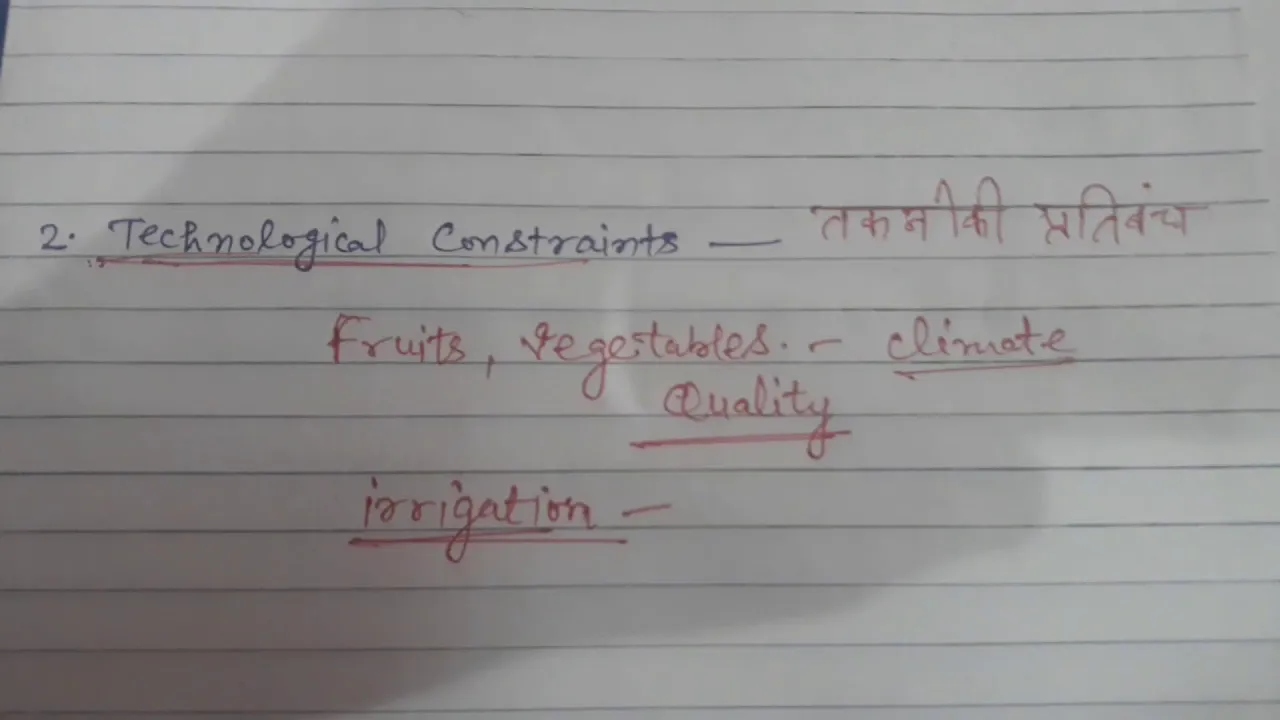 2. Technological Constraints — तकनीकी प्रतिबंध
Fruits, Vegetables. - climate
Quality
irrigation —